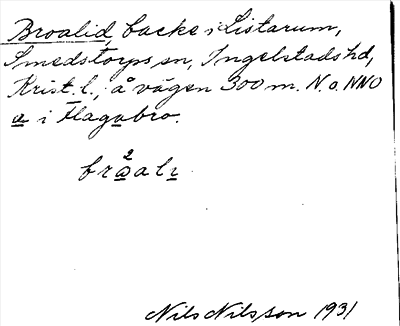 Broalid, backe i Listarum,
Smedstorps sn, Ingelstads hd,
Krist. l.; å vägen 300 m. N. o. NNO
a i Hagabro.
2
bråalı
Nils Nilsson 1931